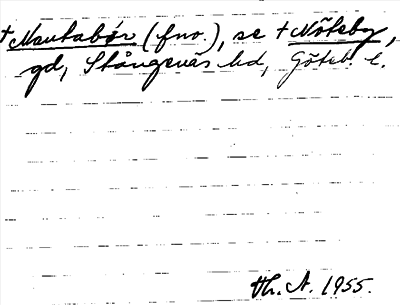 †Mantabør (fno.), se †Nöteby,
gd, Stångenäs hd, Göteb. l.
Hr. A. 1955.